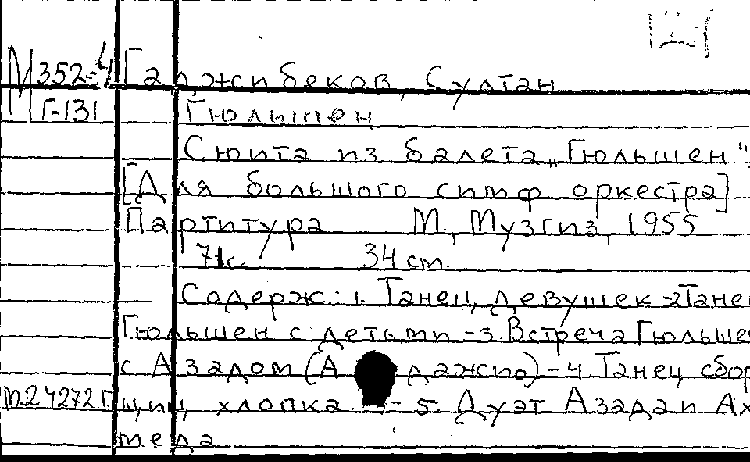 М352-4 Гаджибеков, Султан
Г-131 Гюльшен
Сюита из балета „Гюльшен".
[Для большого симф оркестра]
Партитура М., Музгиз, 1955
71с. 34 cm
Содерж: 1. Танец девушек -2 Танец
Гюльшен с детьми -3. Встреча Гюльшен
с Азадом (А дажио) -4. Танец сбор
m24272 щиц хлопка -5. Дуэт Азада и Ах
меда